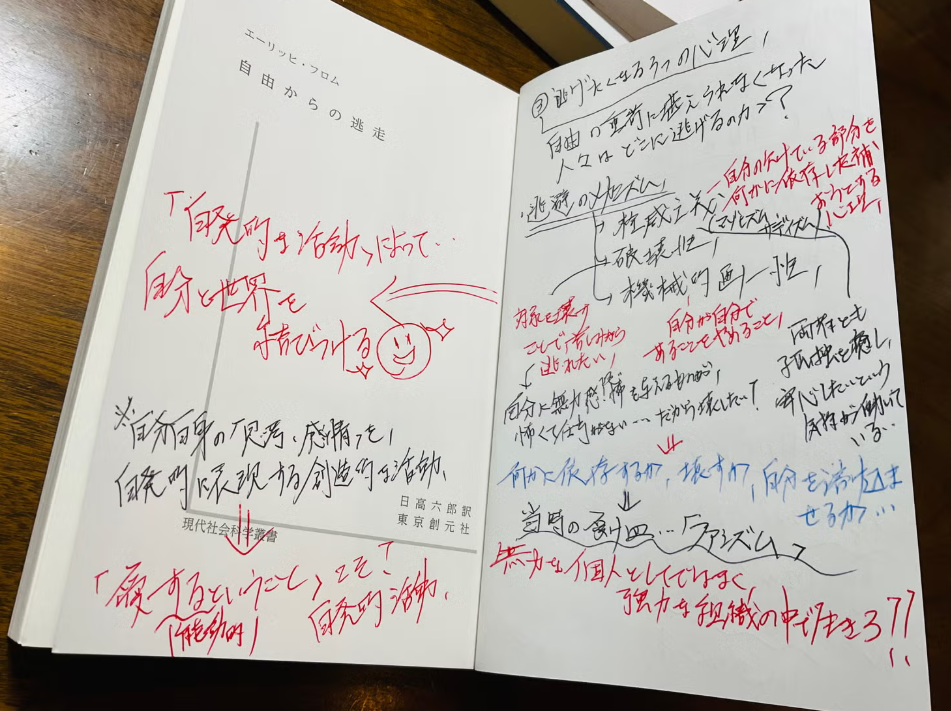 エーリッヒ・フロム
自由からの逃走
「自発的な活動」によって…
自分と世界を
結びつける
※自分自身の「思考、感情」を、
自発的に表現する創造的な活動、
日高六郎訳
東京創元社
現代社会科学叢書
「愛するということ」こそ!
(能動的)
自発的活動、
③逃げたくなる3つの心理、
自由の重荷に堪えられなくなった
人々はどこに逃げるのか??
逃避のメカニズム、
権威主義
マゾヒズム サディズム
自分の欠けている部分を
何かに依存した補
おうとする
心理、
破壊性、
機械的画一性、
対象を壊す
ことで苦しみから
逃れたい!
自分が自分で
あることをやめること、
両者とも
孤独を癒し、
安心したいという
感情が働いて
いる…
自分に無力感、恐怖を与えるものが、
怖くて仕方がない…だから壊したい?
何かに依存するか、壊すか、自分を溶け込ま
せるか…
当時の受け皿…「ファシズム」
無力な個人としてではなく
強力な組織の中で生きろ??